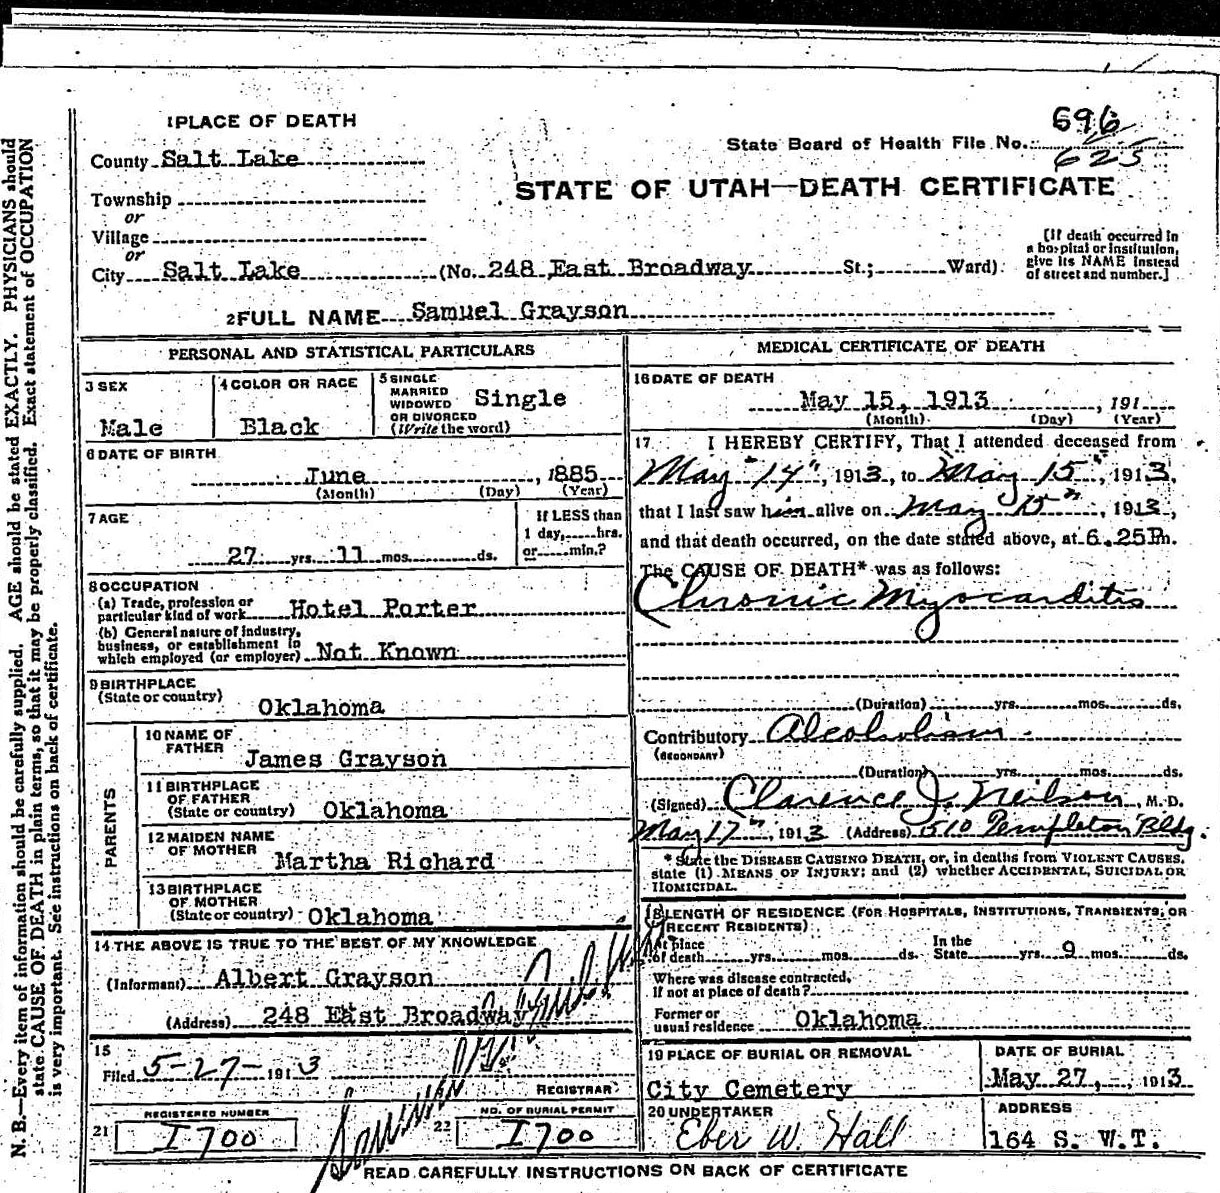 1 PLACE OF DEATH
County Salt Lake
Township
or
Village
or
City Salt Lake (No. 248 East Broadway St.; Ward)
696
State Board of Health File No. 625
STATE OF UTAH—DEATH CERTIFICATE
[If death occurred in
a hospital or institution,
give its NAME instead
of street and number.]
2 FULL NAME Samuel Grayson
PERSONAL AND STATISTICAL PARTICULARS
3 SEX
Male
4 COLOR OR RACE
Black
5 SINGLE
MARRIED
WIDOWED
OR DIVORCED
(Write the word)
Single
6 DATE OF BIRTH
June , 1885
(Month) (Day) (Year)
7 AGE
27 yrs. 11 mos. ds.
If LESS than
1 day, hrs.
or min.?
8 OCCUPATION
(a) Trade, profession or
particular kind of work Hotel Porter
(b) General nature of industry,
business, or establishment in
which employed (or employer) Not Known
9 BIRTHPLACE
(State or country)
Oklahoma
PARENTS
10 NAME OF
FATHER
James Grayson
11 BIRTHPLACE
OF FATHER
(State or country) Oklahoma
12 MAIDEN NAME
OF MOTHER
Martha Richard
13 BIRTHPLACE
OF MOTHER
(State or country) Oklahoma
14 THE ABOVE IS TRUE TO THE BEST OF MY KNOWLEDGE
(Informant) Albert Grayson
(Address) 248 East Broadway
15
Filed 5-27- 1913
REGISTRAR
21 REGISTERED NUMBER
I 700
22 NO. OF BURIAL PERMIT
I 700
MEDICAL CERTIFICATE OF DEATH
16 DATE OF DEATH
May 15, 1913 , 191
(Month) (Day) (Year)
17 I HEREBY CERTIFY, That I attended deceased from
May "14", 1913, to May 15", 1913,
that I last saw him alive on May 15", 1913,
and that death occurred, on the date stated above, at 6.25 P.m.
The CAUSE OF DEATH* was as follows:
Chronic Myocarditis
(Duration) yrs. mos. ds.
Contributory Alcoholism.
(SECONDARY)
(Duration) yrs. mos. ds.
(Signed) Clarence J. Neilson, M. D.
May 17", 1913 (Address) 510 Templeton Bldg.
* State the DISEASE CAUSING DEATH, or, in deaths from VIOLENT CAUSES,
state (1) MEANS OF INJURY; and (2) whether ACCIDENTAL, SUICIDAL OR
HOMICIDAL.
18 LENGTH OF RESIDENCE (FOR HOSPITALS, INSTITUTIONS, TRANSIENTS, OR
RECENT RESIDENTS)
At place
of death yrs. mos. ds.
In the
State yrs. 9 mos. ds.
Where was disease contracted,
If not at place of death?
Former or
usual residence Oklahoma
19 PLACE OF BURIAL OR REMOVAL
City Cemetery
DATE OF BURIAL
May 27, 1913
20 UNDERTAKER
Eber W. Hall
ADDRESS
164 S. W.T.
READ CAREFULLY INSTRUCTIONS ON BACK OF CERTIFICATE
N. B.—Every item of information should be carefully supplied. AGE should be stated EXACTLY. PHYSICIANS should
state CAUSE OF DEATH in plain terms, so that it may be properly classified. Exact statement of OCCUPATION
is very important. See instructions on back of certificate.